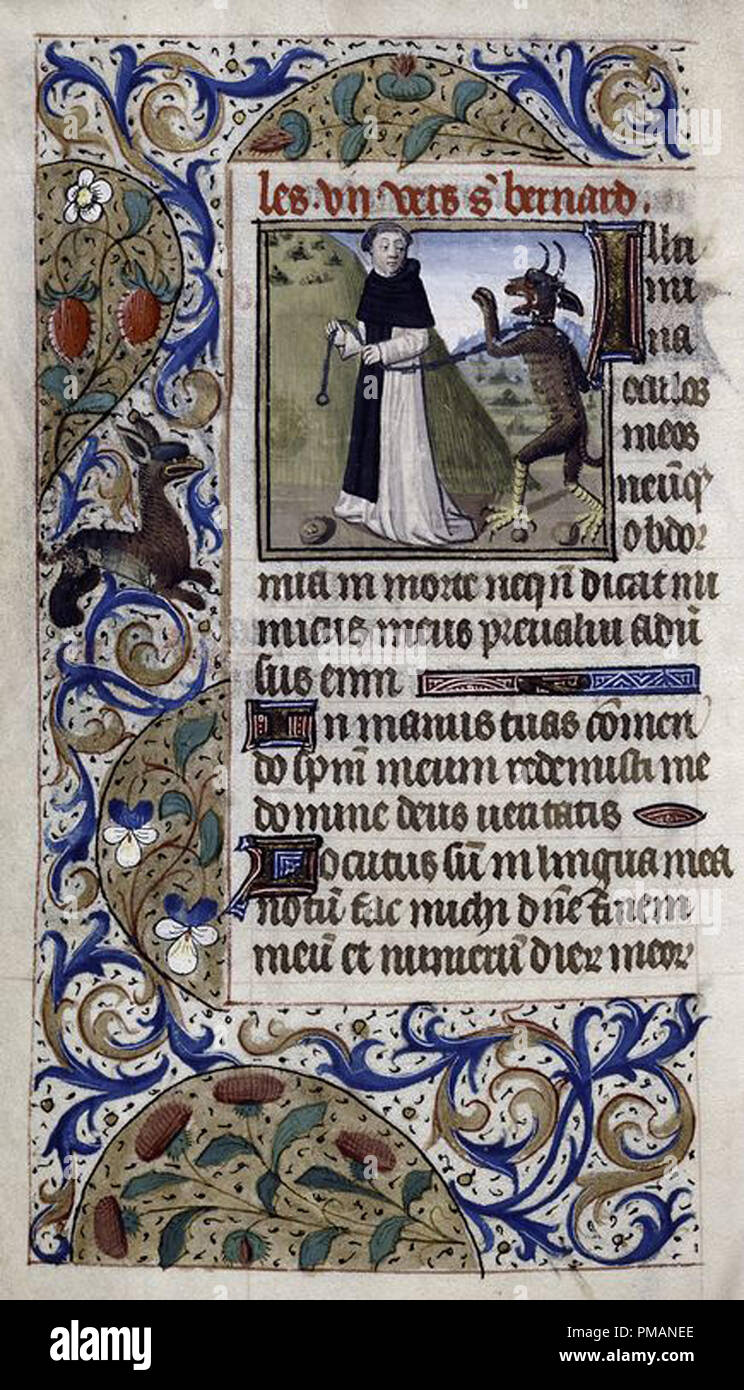 les .vij. vers s̄ bernard.
Illu
mi
na
oculos
meos
ne ūq̄
obdor
mia in morte neq̄n dicat ini
micus meus preualui aduē
sus eum
In manus tuas cōmen
do sp̄m meum redemisti me
domine deus ueritatis
Locutus sū in lingua mea
notū fac michi dn̄e finem
meū et numerū dier meor
alamy
alamy
alamy
Image ID: PMANEE
www.alamy.com